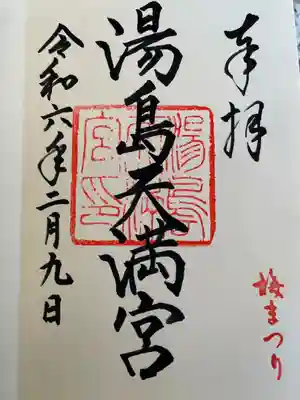 奉拝
梅まつり
湯島天満宮
令和六年二月九日